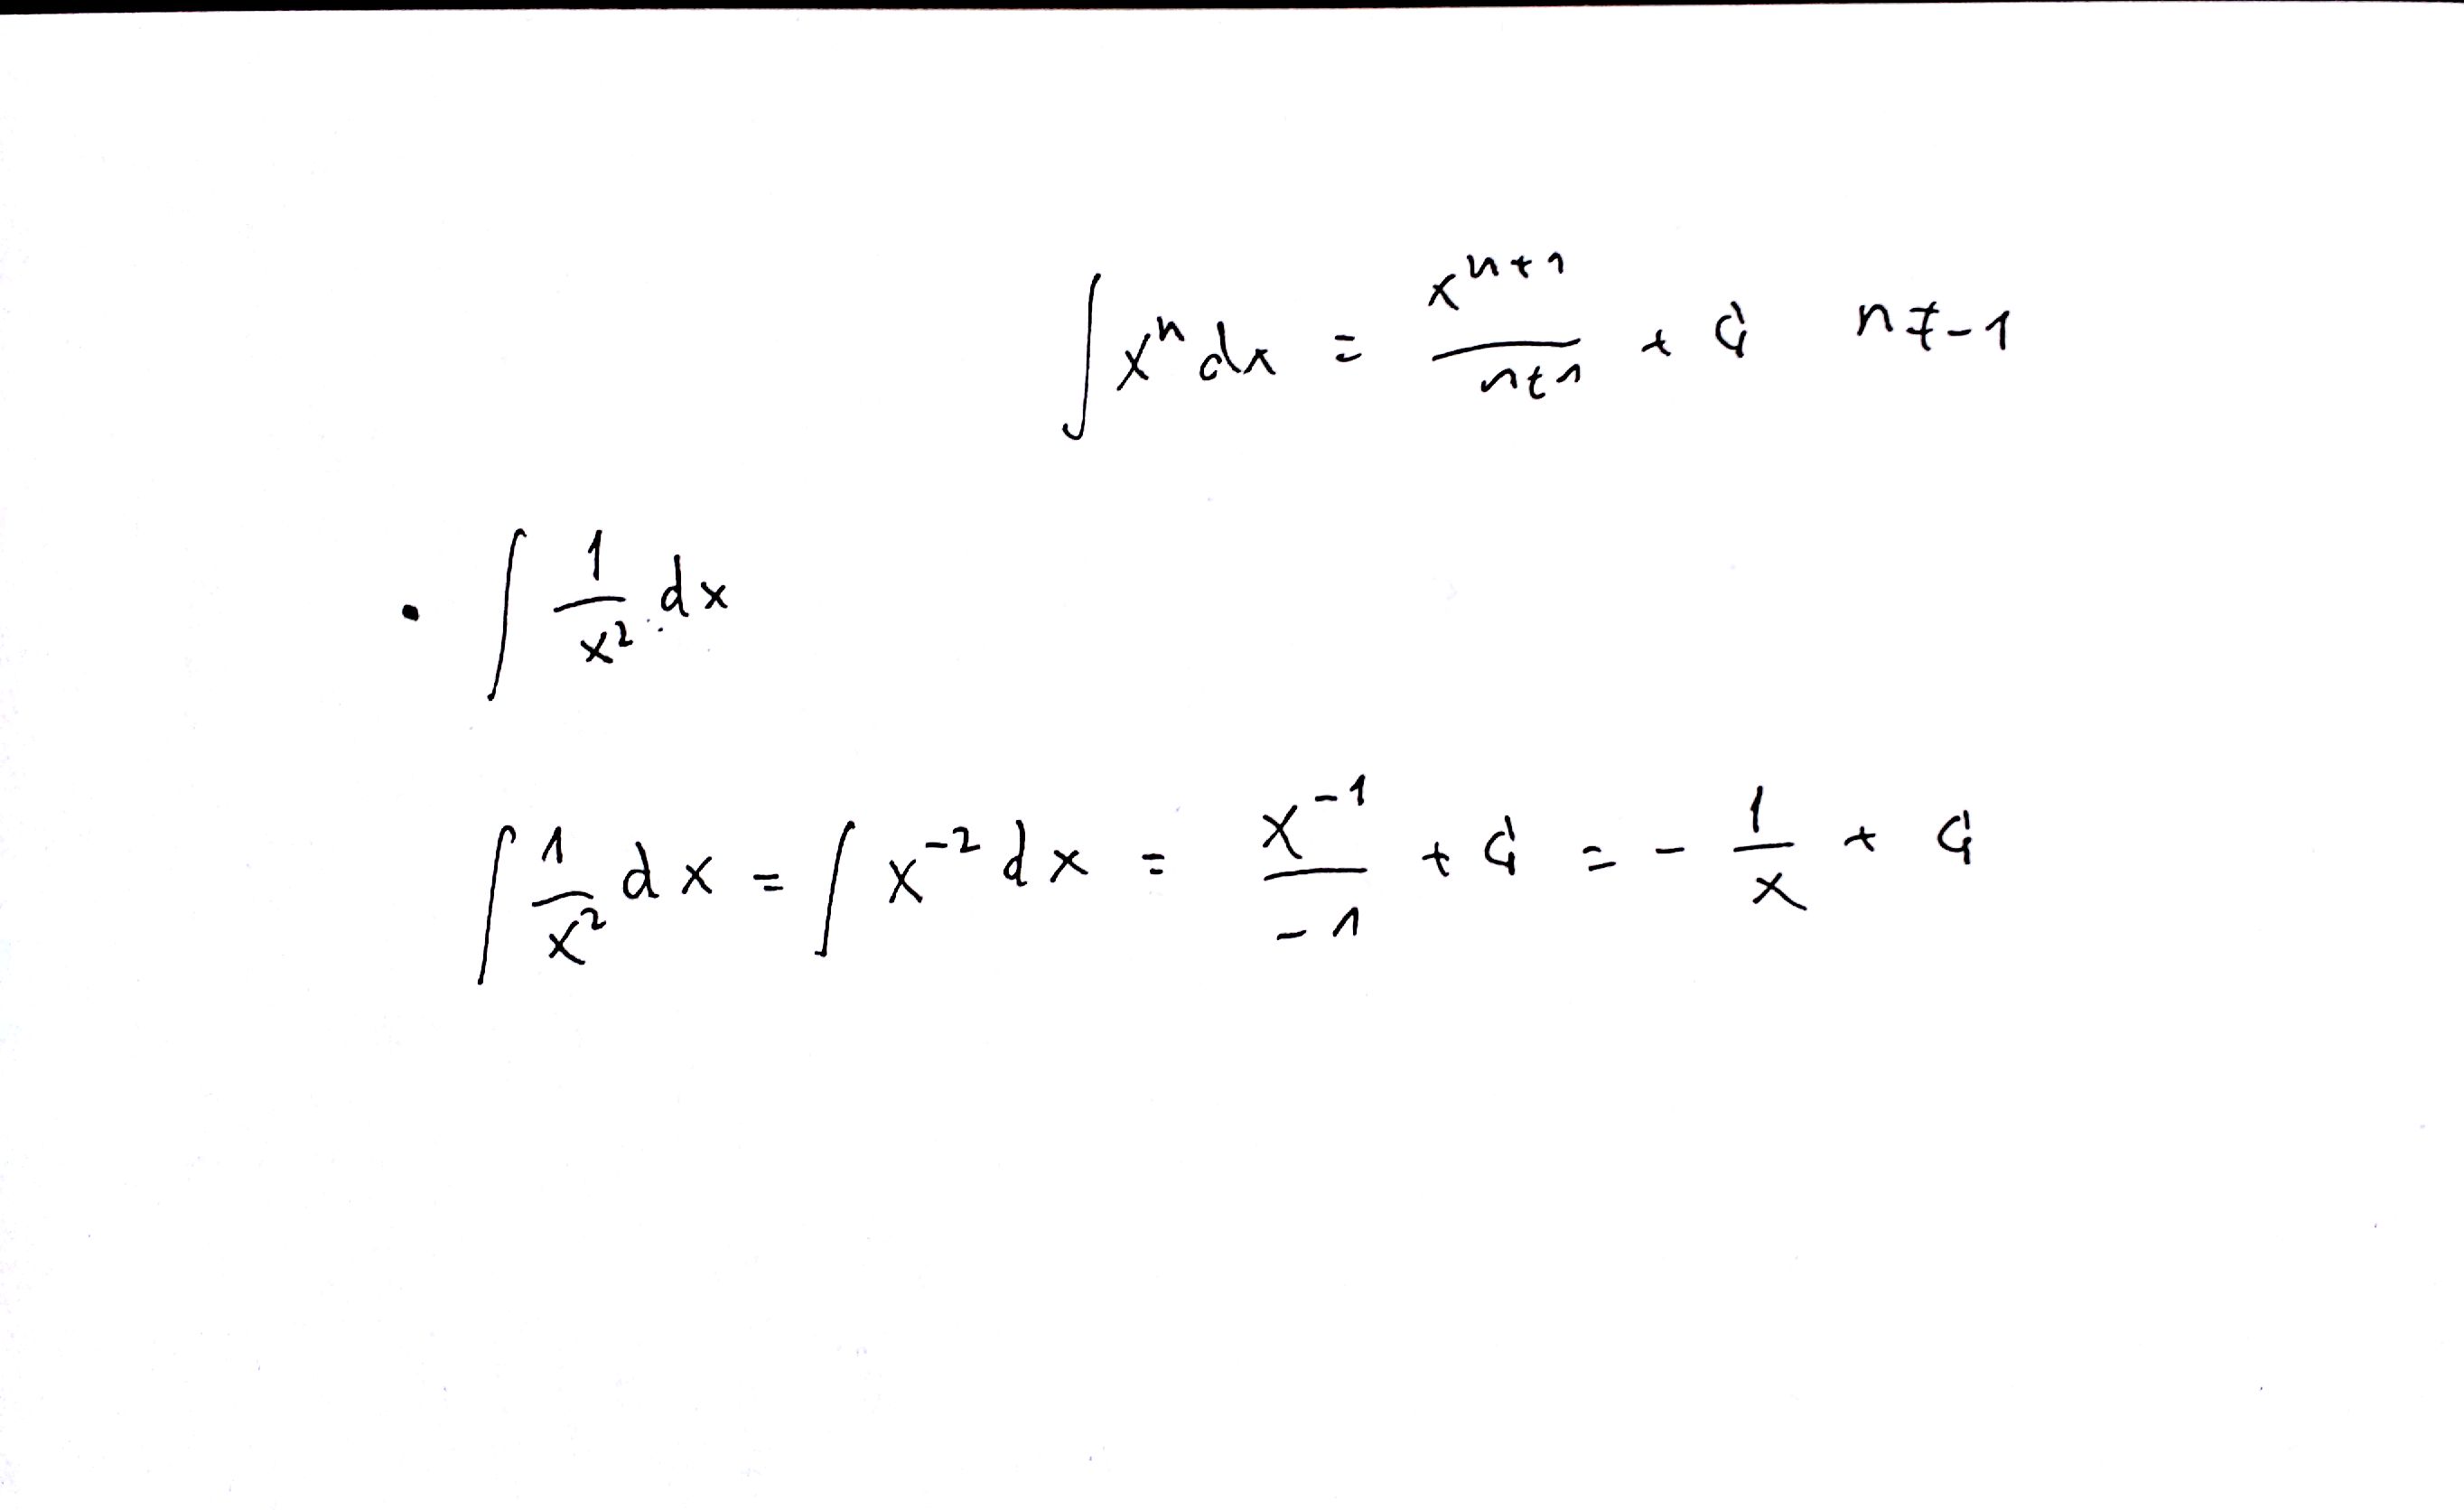 ∫ xⁿ dx = xⁿ⁺¹/(n+1) + C n ≠ -1
• ∫ 1/x² dx
∫ 1/x² dx = ∫ x⁻² dx = x⁻¹/-1 + C = - 1/x + C